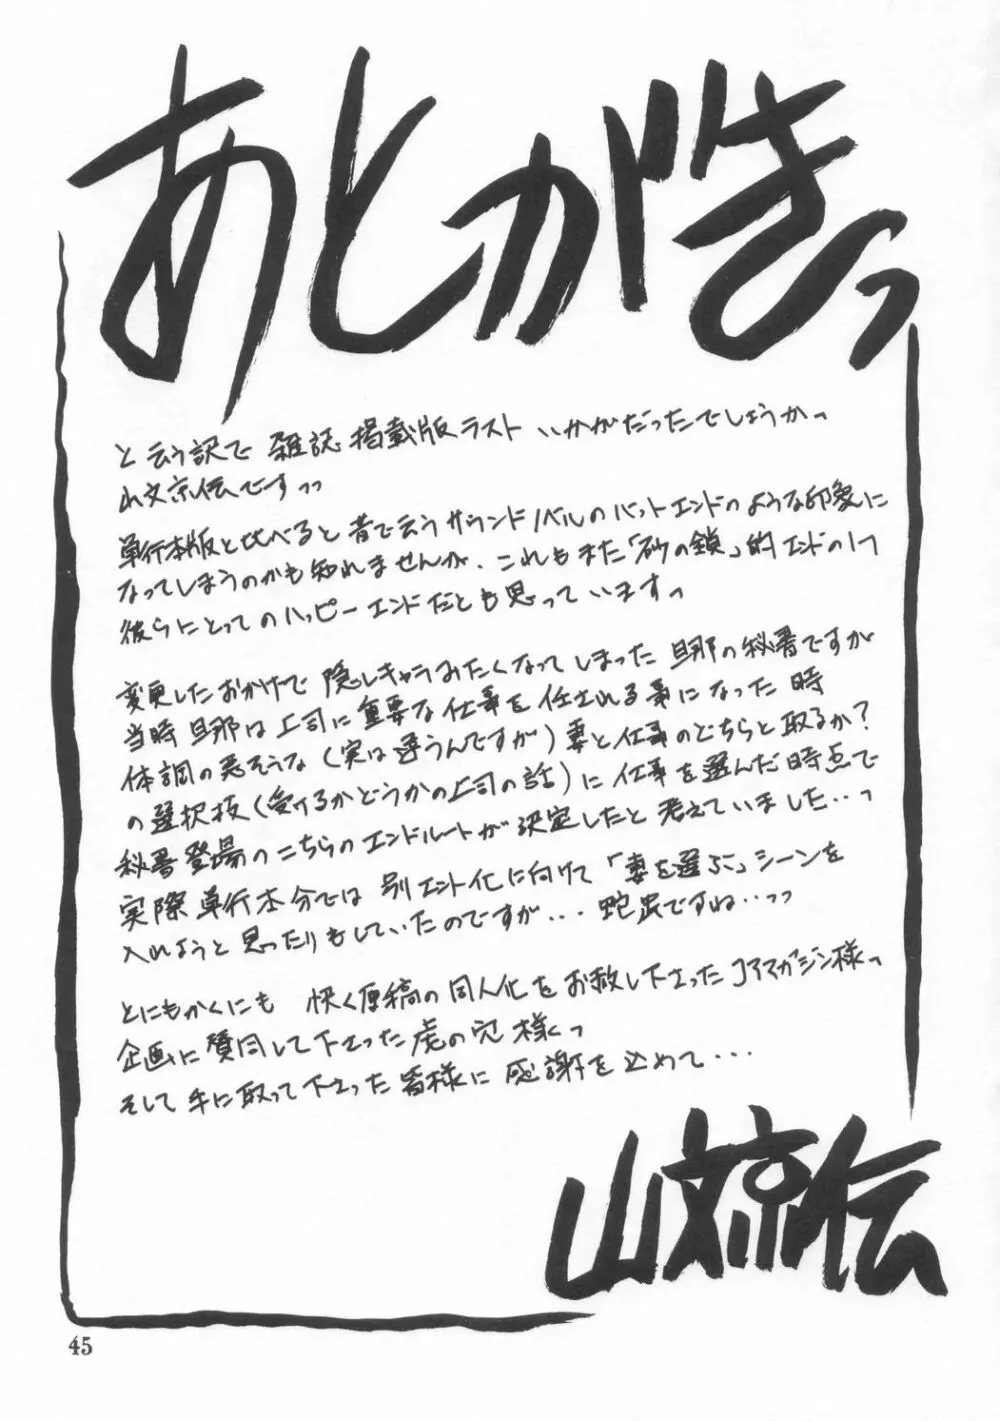 あとがきっ
と云う訳で 雑誌掲載版ラスト いかがだったでしょうかっ
山文京伝ですっっ
単行本版と比べると 昔で云うサウンドノベルのバットエンドのような印象に
なってしまうのかも知れませんが、これもまた「砂の鎖」的エンドの1つ
彼らにとってのハッピーエンドだとも思っていますっ
変更したおかげで 隠しキャラみたくなってしまった 旦那の秘書ですが
当時 旦那は上司に重要な仕事を任される事になった時
体調の悪そうな(実は違うんですが)妻と仕事のどちらと取るか?
の選択枝(受けるかどうかの上司の話)に仕事を選んだ時点で
秘書登場のこちらのエンドルートが決定したと考えていました…っ
実際単行本分では 別エンド化に向けて「妻を選ぶ」シーンを
入れようと思ったりもしていたのですが… 蛇足ですね…っっ
とにもかくにも 快く原稿の同人化をお赦し下さったコアマガジン様っ
企画に賛同して下さった虎の穴様くっ
そして手に取って下さった皆様に 感謝を込めて…
山文京伝
45